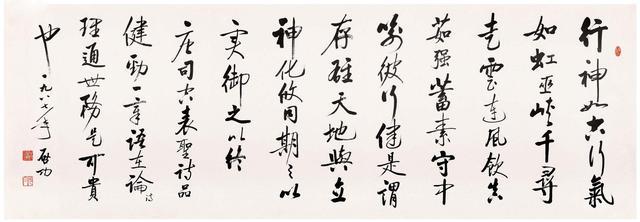 行神如空行氣
如虹巫峽千尋
走雲連風飲真
茹强蓄素守中
喻彼行健是謂
存雄天地與立
神化攸同期之以
實御之以終
右司空表聖詩品
健勁一章語在論詩
理通世務是可貴
也 一九八七年 啟功